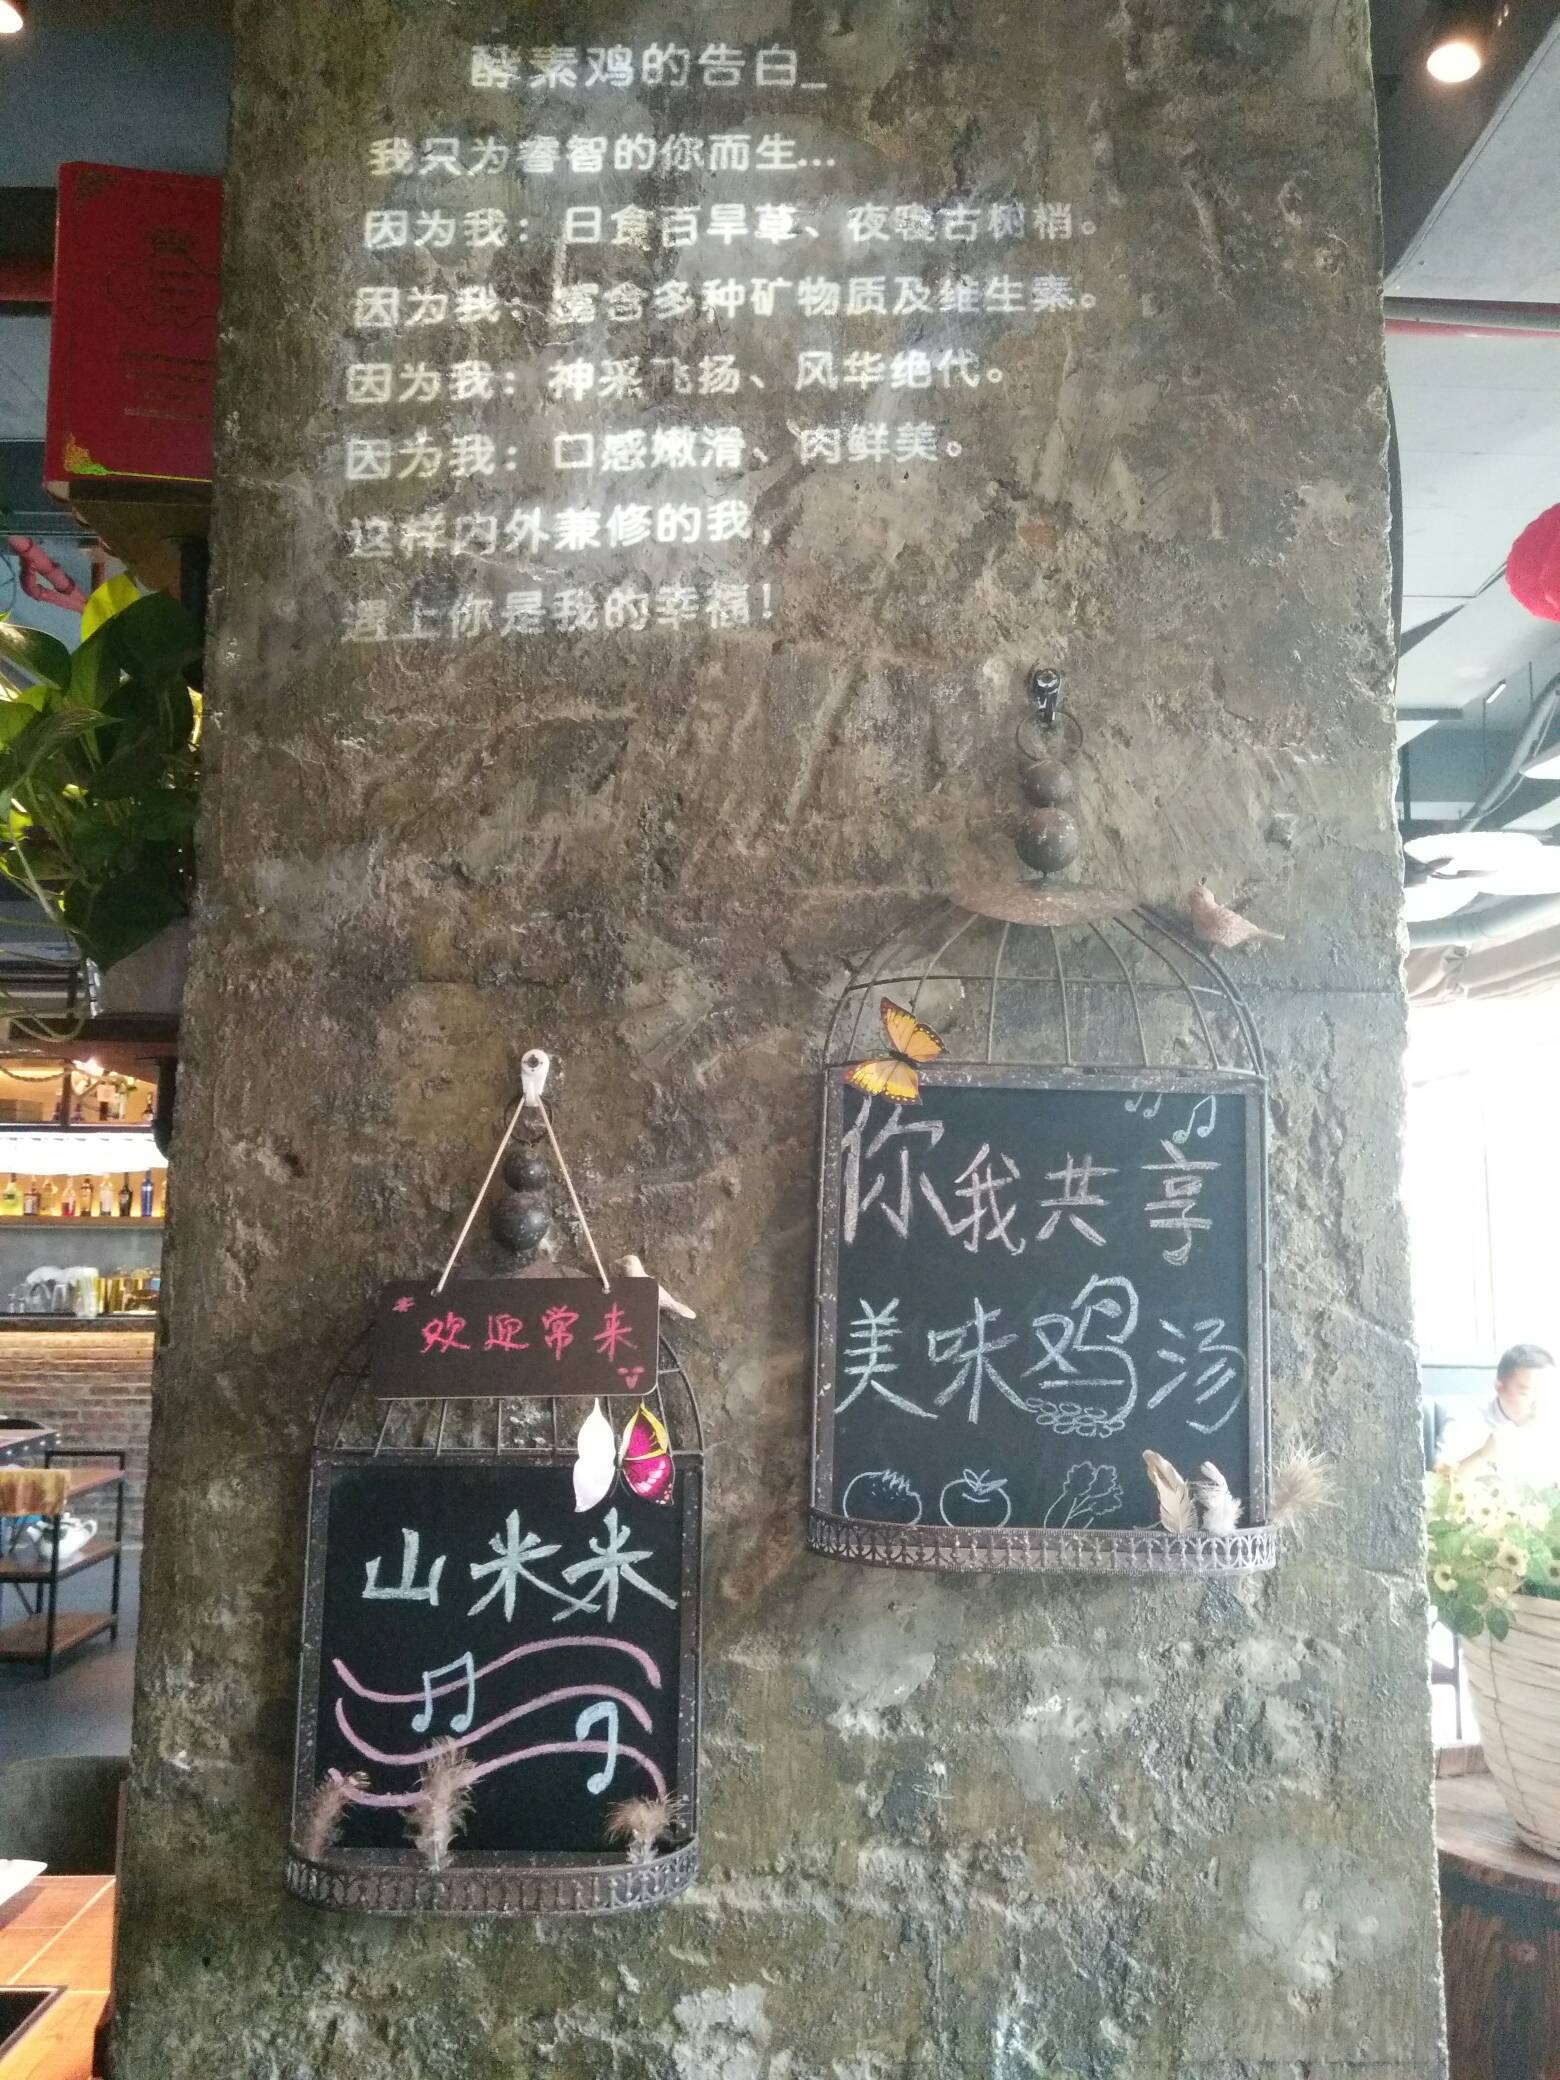 酵素鸡的告白_
我只为睿智的你而生...
因为我：日食百旱草、夜憩古树梢。
因为我：富含多种矿物质及维生素。
因为我：神采飞扬、风华绝代。
因为我：口感嫩滑、肉鲜美。
这样内外兼修的我，
遇上你是我的幸福！
你我共享
美味鸡汤
欢迎常来
山米米